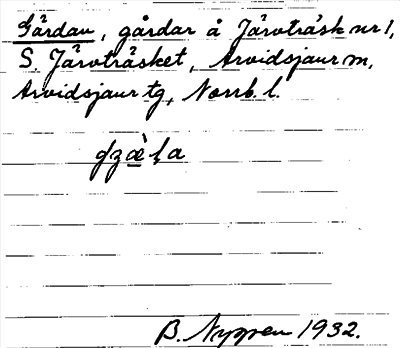 Gårdan, gårdar å Järvträsk nr 1,
S. Järvträsket, Arvidsjaur m,
Arvidsjaur tg, Norrb. l.
B. Nyman 1932.